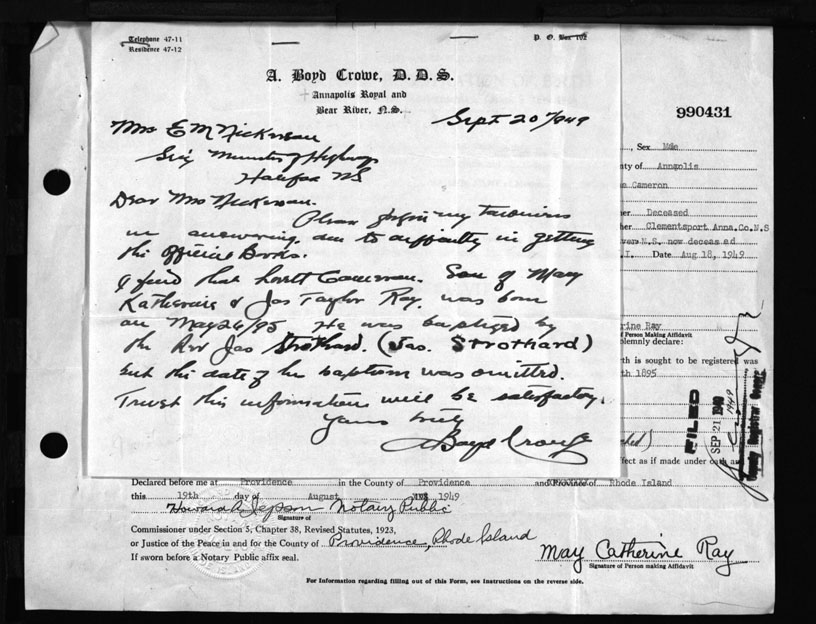 Telephone 47-11
Residence 47-12
P. O. Box 102
A. Boyd Crowe, D. D. S.
Annapolis Royal and
Bear River, N.S.
Sept 20/1949
Mrs E M Nickerson
Ministry of Highways
Halifax NS
Dear Mrs Nickerson.
Please forgive my tardiness
in answering, due to difficulty in getting
the official Books.
I find that Lovett Cameron. Son of Mary
Katherine & Jas Taylor Ray. was born
on May 26/95 He was baptized by
the Rev Jas Strothard. (Jas. Strothard)
but the date of the baptism was omitted.
Trust this information will be satisfactory.
Yours truly
A Boyd Crowe
990431
, Sex Male
ty of Annapolis
Cameron
Deceased
Clementsport Anna.Co.N.S
N.S. now deceased
Date Aug 18, 1949
rine Ray
of Person making Affidavit
olemnly declare:
th is sought to be registered was
th 1895
FILED
SEP 21 1949
1949
Deputy Registrar General
ffect as if made under oath and
Declared before me at Providence in the County of Providence and Rhode Island
this 19th day of August 1949
Howard A. Jepson Notary Public
Signature of
Commissioner under Section 5, Chapter 38, Revised Statutes, 1923,
or Justice of the Peace in and for the County of Providence, Rhode Island
If sworn before a Notary Public affix seal.
May Catherine Ray
Signature of Person making Affidavit
For Information regarding filling out of this Form, see Instructions on the reverse side.